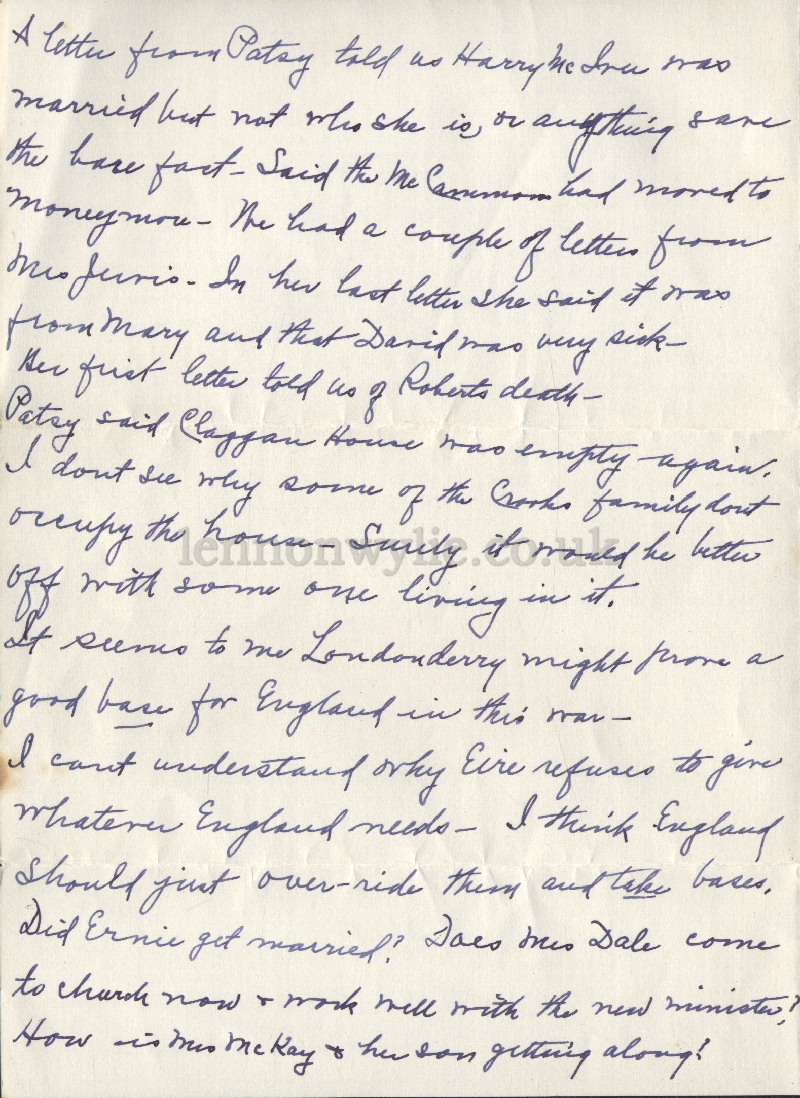 A letter from Patsy told us Harry McIver was
married but not who she is, or anything save
the bare fact - Said the McCammons had moved to
Moneymore - We had a couple of letters from
Mrs Jervis - In her last letter she said it was
from Mary and that David was very sick -
Her first letter told us of Roberts death -
Patsy said Claggan House was empty again.
I dont see why some of the Crooks family dont
occupy the house - Surely it would be better
off with some one living in it.
It seems to me Londonderry might prove a
good base for England in this war -
I cant understand why Eire refuses to give
whatever England needs - I think England
should just over-ride them and take bases.
Did Ernie get married? Does Mrs Dale come
to church now & work well with the new minister?
How is Mrs McKay & her son getting along?
lennonwylie.co.uk